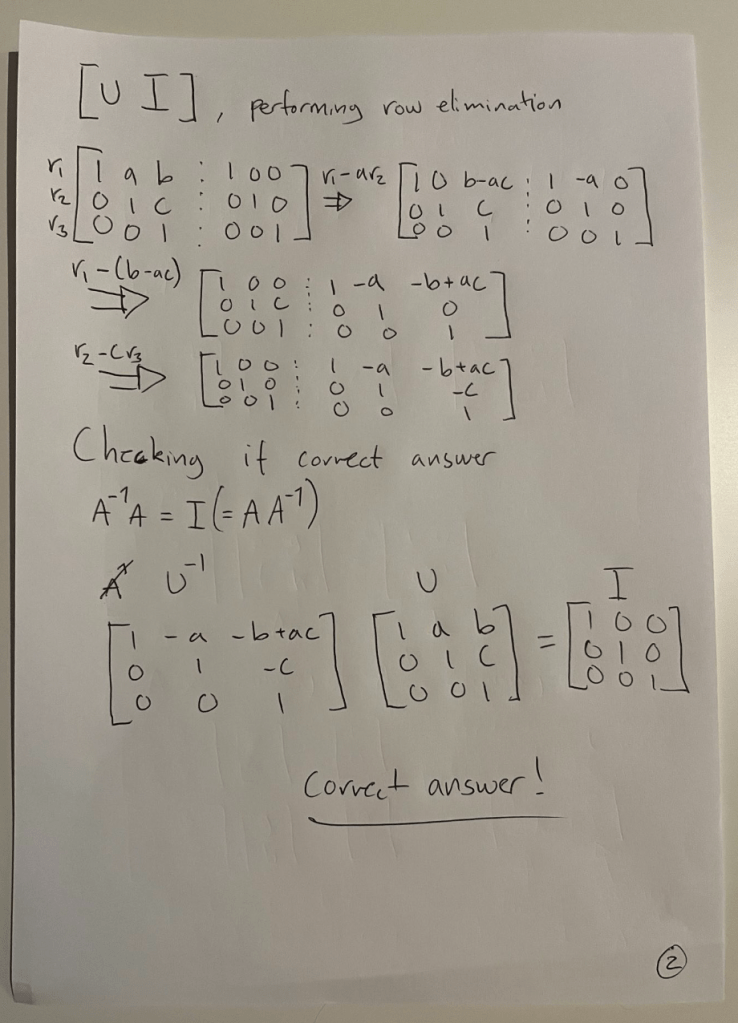 [U I], performing row elimination
r1 [1 a b : 1 0 0] r1-ar2 [1 0 b-ac : 1 -a 0]
r2 [0 1 c : 0 1 0] ⇒ [0 1 c : 0 1 0]
r3 [0 0 1 : 0 0 1] [0 0 1 : 0 0 1]
r1-(b-ac) [1 0 0 : 1 -a -b+ac]
⇒ [0 1 c : 0 1 0]
[0 0 1 : 0 0 1]
r2-cr3 [1 0 0 : 1 -a -b+ac]
⇒ [0 1 0 : 0 1 -c]
[0 0 1 : 0 0 1]
Checking if correct answer
A⁻¹A = I(=AA⁻¹)
U⁻¹ U I
[1 -a -b+ac] [1 a b] = [1 0 0]
[0 1 -c] [0 1 c] [0 1 0]
[0 0 1] [0 0 1] [0 0 1]
Correct answer!
2